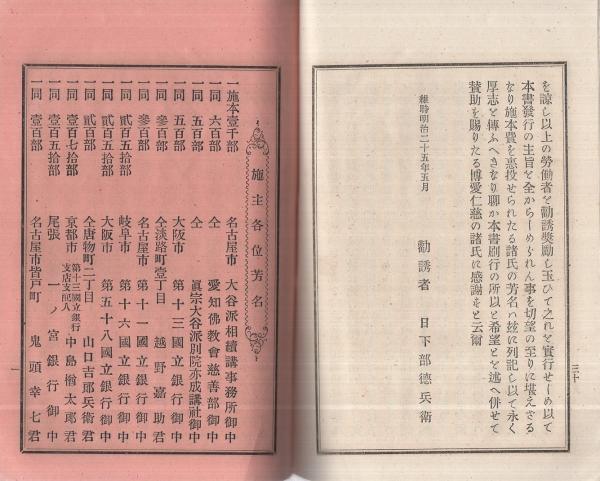 を諒し以上の勞働者を勸誘奬勵し玉ひて之れを實行せしめ以て
本書發行の主旨を全からしめられん事を切望の至りに堪えさる
なり施本費を惠投せられたる諸氏の芳名ハ玆に列記し以て永く
厚志を傳ふへきなり聊か本書刷行の所以と希望とを述へ併せて
賛助を賜りたる博愛仁慈の諸氏に感謝をと云爾
維時明治二十五年五月
勸誘者 日下部德兵衛
三十
施主各位芳名
一施本壹千部 名古屋市 大谷派相續講事務所御中
一同 六百部 仝 愛知佛教會慈善部御中
一同 五百部 仝 眞宗大谷派別院亦成講社御中
一同 五百部 大阪市 第十三國立銀行御中
一同 參百部 仝淡路町壹丁目 越野嘉助君
一同 參百部 名古屋市 第十一國立銀行御中
一同 貳百五拾部 岐阜市 第十六國立銀行御中
一同 貳百五拾部 大阪市 第五十八國立銀行御中
一同 貳百部 仝唐物町二丁目 山口吉郎兵衛君
一同 壹百七拾部 京都市 第十三國立銀行支店支配人 中島楢太郎君
一同 壹百五拾部 尾張 一ノ宮銀行御中
一同 壹百部 名古屋市皆戸町 鬼頭幸七君
一